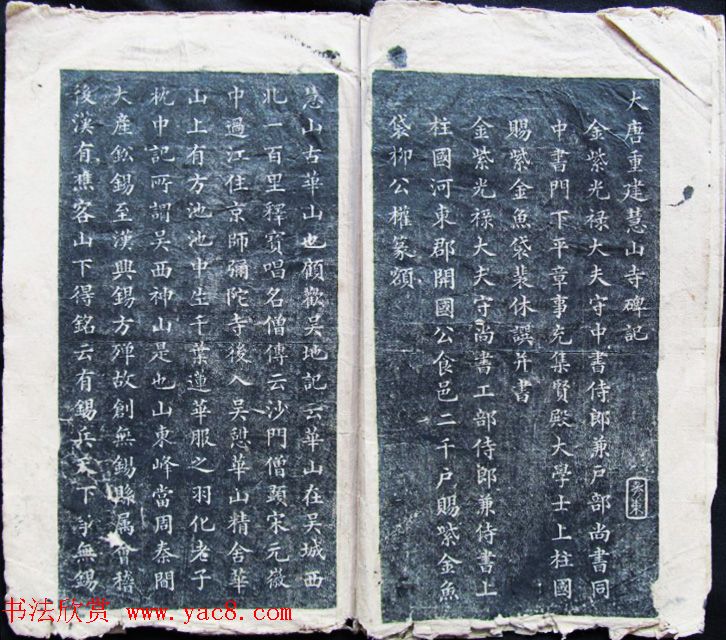 大唐重建慧山寺碑記
金紫光禄大夫守中書侍郎兼戸部尚書同
中書門下平章事充集賢殿大學士上柱國
賜紫金魚袋裴休譔并書
金紫光禄大夫守尚書工部侍郎兼侍書上
柱國河東郡開國公食邑二千户賜紫金魚
袋柳公權篆額
慧山古華山也顧歡吴地記云華山在吴城西
北一百里釋寳唱名僧傳云沙門僧顯宋元徽
中過江住京師彌陀寺後入吴憩華山精舍華
山上有方池池中生千葉蓮華服之羽化老子
枕中記所謂吴西神山是也山東峰當周秦間
大産鈆錫至漢興錫方殫故創無錫縣属會稽
後漢有樵客山下得銘云有錫兵天下争無錫
书法欣赏 www.yac8.com